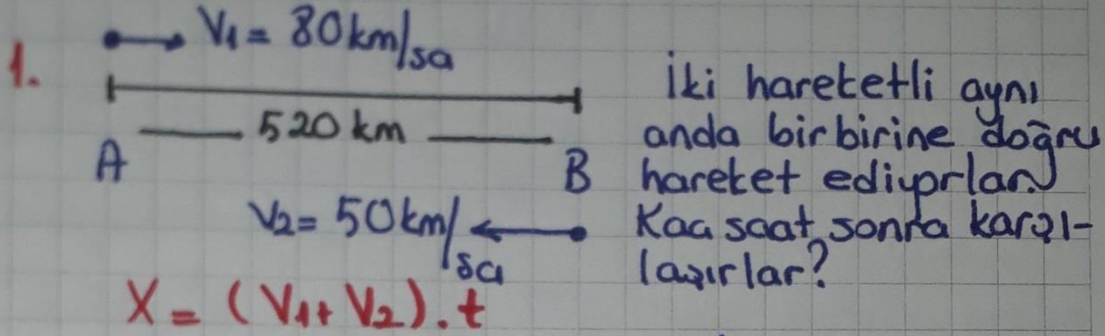 1.
V₁ = 80 km/sa
520 km
A
B
V₂ = 50 km/sa
X = (V₁ + V₂) . t
İki hareketli aynı
anda birbirine doğru
hareket ediyorlar.
Kaç saat sonra karşı-
laşırlar?